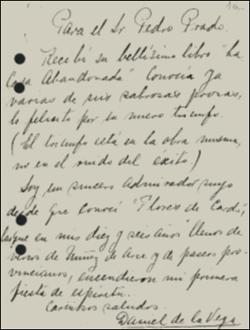 Para el Sr. Pedro Prado.
Recibí su bellísimo libro "La
Casa Abandonada" Conocía ya
varias de sus sabrosas prosas,
lo felicito por su nuevo triunfo.
(El triunfo está en la obra misma,
no en el ruido del éxito)
Soy un sincero admirador suyo
desde que conocí "Flores de Cardo",
que en mis diez y seis años llenos de
versos de Núñez de Arce y de paseos pro-
vincianos, encendieron mi primera
fiesta de espíritu.
saludos.
Daniel de la Vega